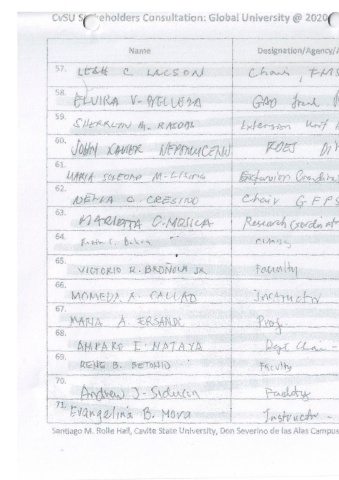 CvSU Stakeholders Consultation: Global University @ 2020
Name Designation/Agency/
57. C. LACSON Chair, FMS
58. ELVIRA V. GAD
59. SHERRLYN M. RASDAS Extension Unit
60. JOHN XAVIER NEPOMUCENO RDES
61. MARIA SOLEDAD M. Extension Coordina
62. C. CRESINO Chair GFPS
63. MARIETTA C. MOJICA Research Coordinat
64.
65. VICTORIO R. JR Faculty
66. A. CALLAO Instructor
67. MARIA A. Prof.
68. AMPARO E. MATAYA Dept Chair -
69. RENE B. BETONIO Faculty
70. Andrew J. Siducon Faculty
71. Evangelina B. Mora Instructor -
Santiago M. Rolle Hall, Cavite State University, Don Severino de las Alas Campus